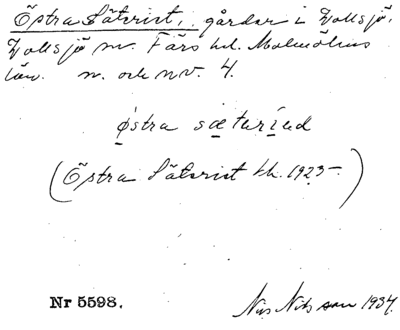 Östra Säterist, gårdar i Vollsjö,
Vollsjö sn. Färs hd. Malmöhus
län. n. och nv. 4.
østra sæteriud
(Östra Säterist kk. 1923-)
Nr 5598. Nils Nilsson 1934.